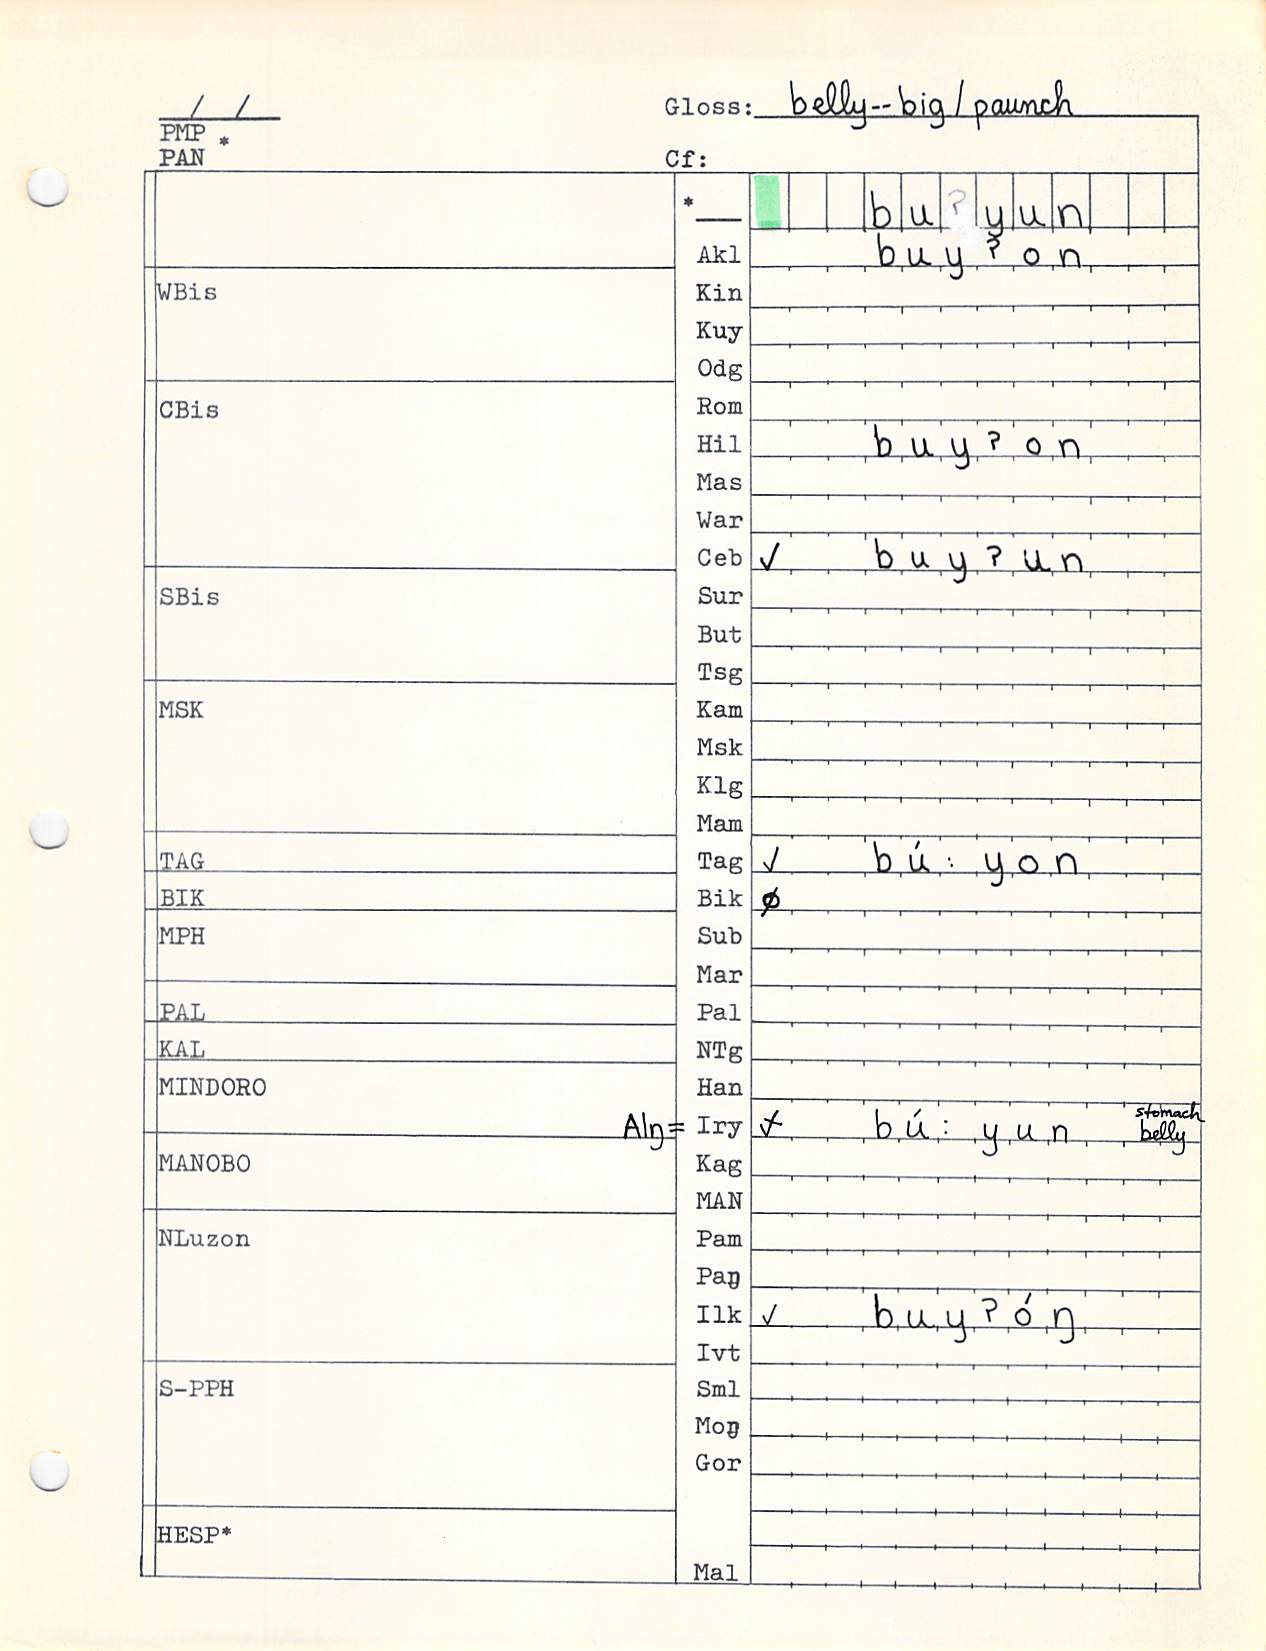 / /
Gloss: belly--big/paunch
PMP *
PAN
Cf:
*___ buʔyun
Akl buyʔon
WBis
Kin
Kuy
Odg
CBis
Rom
Hil buyʔon
Mas
War
Ceb ✓ buyʔun
SBis
Sur
But
Tsg
MSK
Kam
Msk
Klg
Mam
TAG
Tag ✓ bú:yon
BIK
Bik ∅
MPH
Sub
Mar
PAL
Pal
KAL
NTg
MINDORO
Han
stomach
Alŋ= Iry bú:yun belly
MANOBO
Kag
MAN
NLuzon
Pam
Paŋ
Ilk ✓ buyʔóŋ
Ivt
S-PPH
Sml
Moŋ
Gor
HESP*
Mal